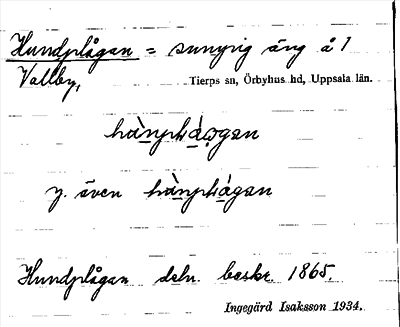 Hundplågan = sumpig äng å 1
Vallby,
Tierps sn, Örbyhus hd, Uppsala län.
y. även
Hundplågan deln. beskr. 1865.
Ingegärd Isaksson 1934.